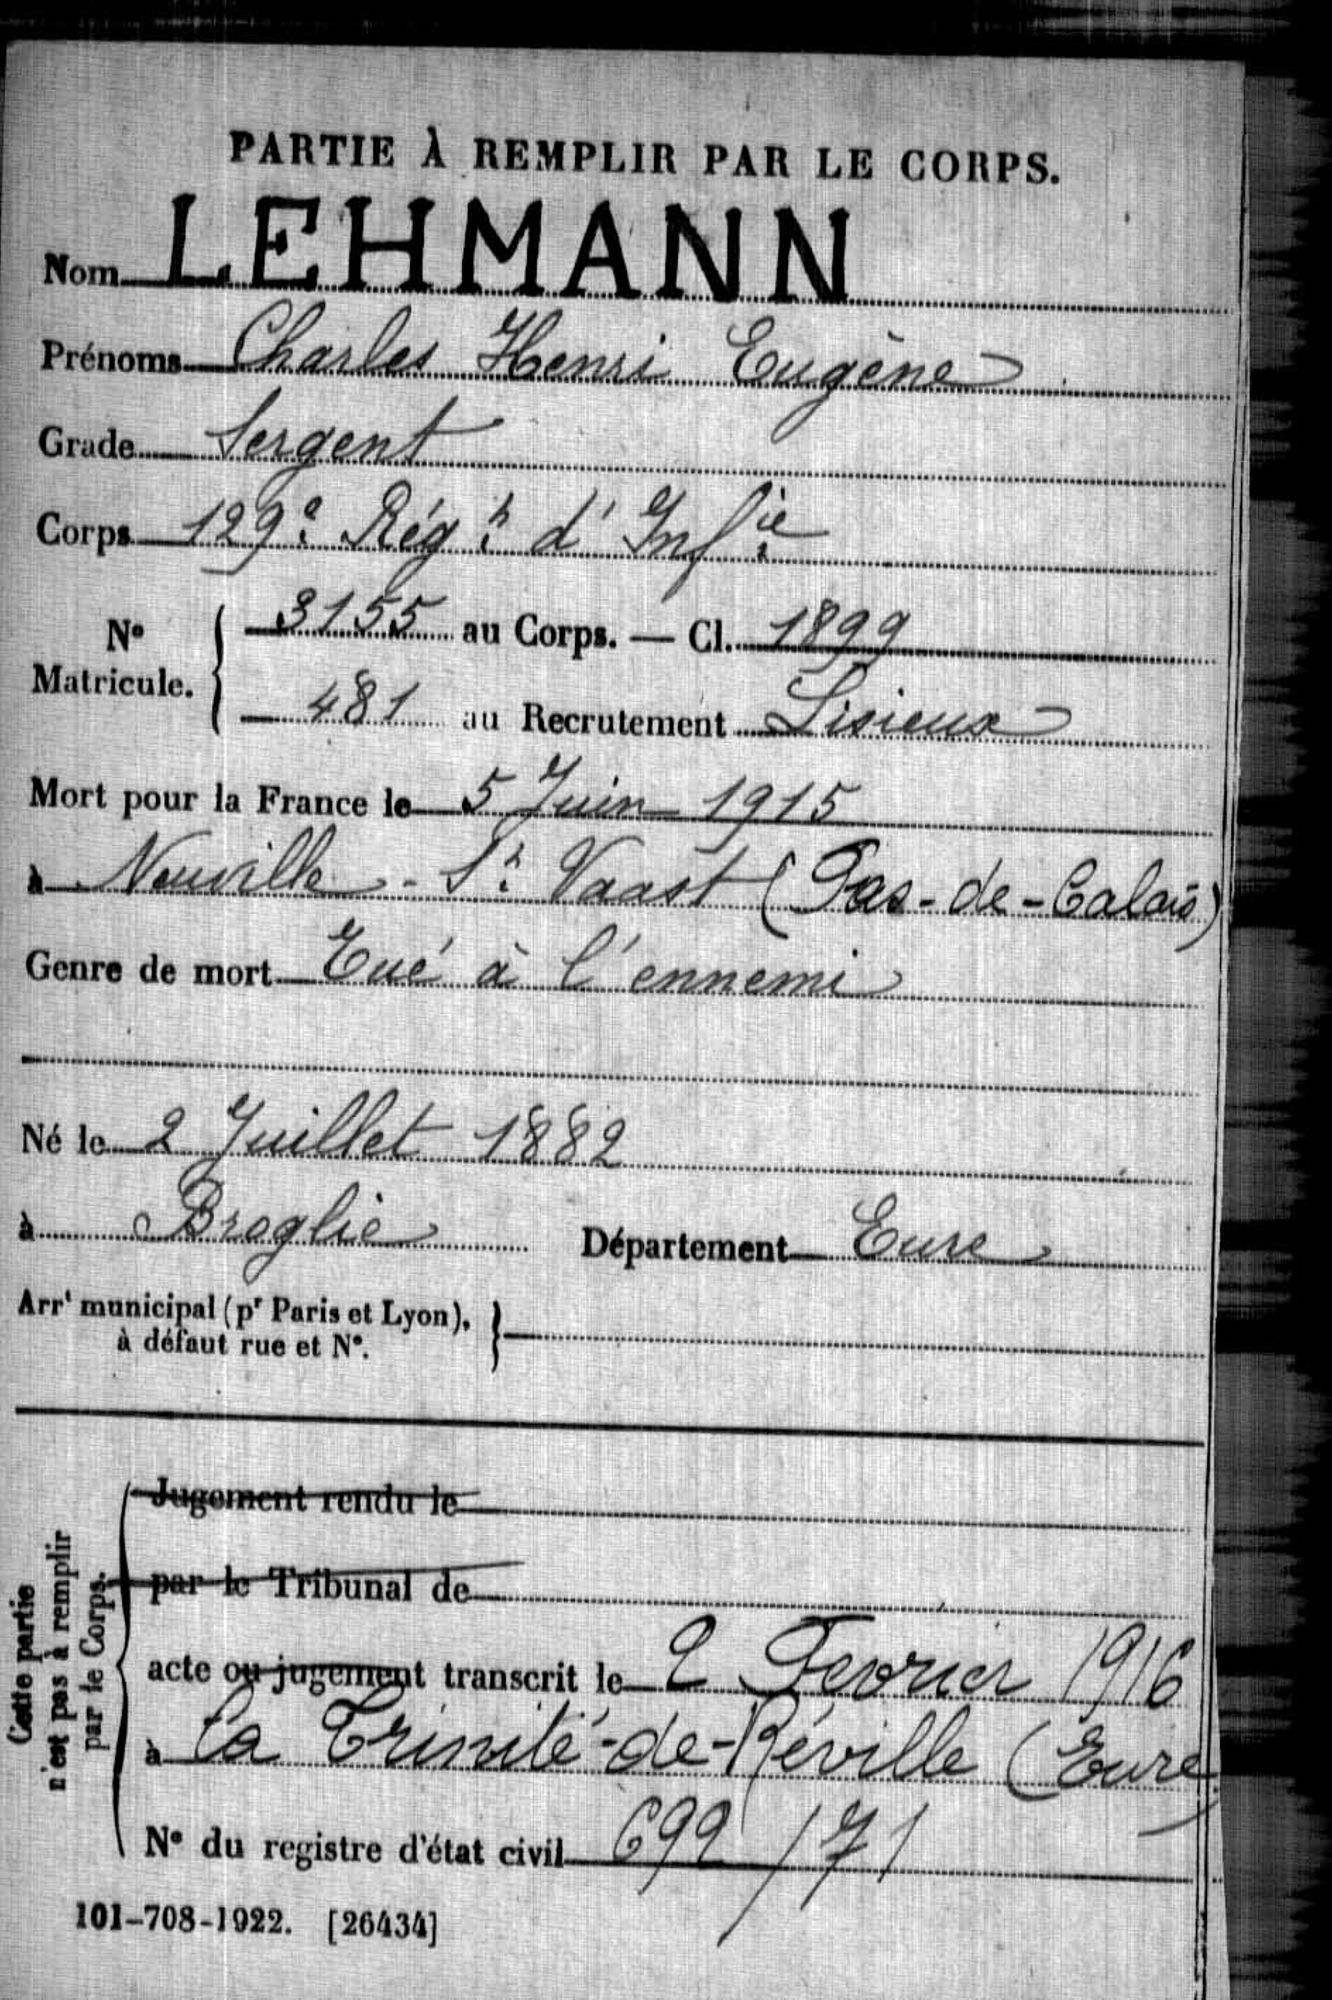 PARTIE À REMPLIR PAR LE CORPS.
Nom LEHMANN
Prénoms Charles Henri Eugène
Grade Sergent
Corps 129e Régt d'Infie
No Matricule. { 3155 au Corps. — Cl. 1899
481 au Recrutement Lisieux
Mort pour la France le 5 Juin 1915
à Neuville-St Vaast (Pas-de-Calais)
Genre de mort Tué à l'ennemi
Né le 2 Juillet 1882
à Broglie Département Eure
Arrt municipal (pr Paris et Lyon),
à défaut rue et No.
Cette partie
n'est pas à remplir
par le Corps.
Jugement rendu le
par le Tribunal de
acte ou jugement transcrit le 2 Fevrier 1916
à La Trinité-de-Réville (Eure)
No du registre d'état civil 692/71
101-708-1922. [26434]